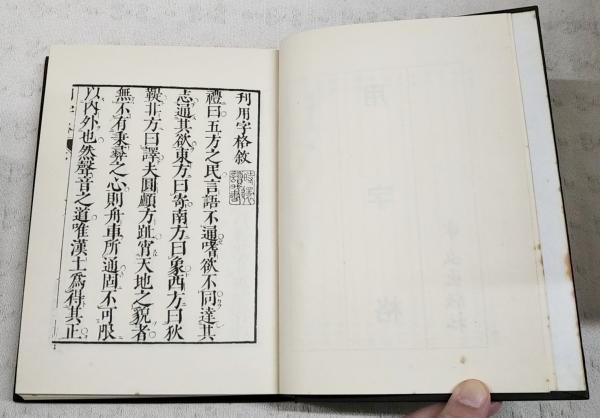 刊用字格敘
禮曰五方之民言語不通嗜欲不同達其
志通其欲東方曰寄南方曰象西方曰狄
鞮非方曰譯夫圓顱方趾宵天地之貌者
無不有秉彝之心則舟車所通固不可限
以内外也然聲音之道唯漢土爲得其正
用
字
格